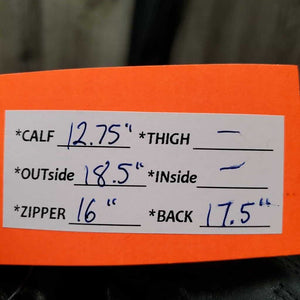 *CALF 12.75" *THIGH —
*OUTside 18.5" *INside —
*ZIPPER 16" *BACK 17.5"